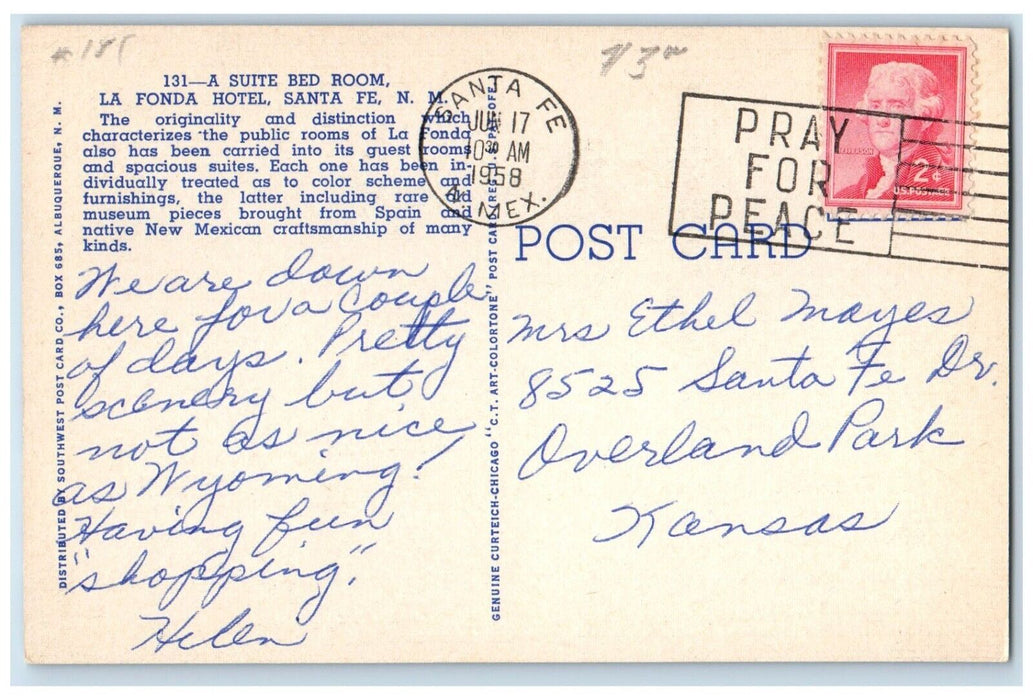 131—A SUITE BED ROOM,
LA FONDA HOTEL, SANTA FE, N. M.
The originality and distinction which
characterizes the public rooms of La Fonda
also has been carried into its guest rooms
and spacious suites. Each one has been in-
dividually treated as to color scheme and
furnishings, the latter including rare and
museum pieces brought from Spain and
native New Mexican craftsmanship of many
kinds.
We are down
here for a couple
of days. Pretty
scenery but
not as nice
as Wyoming!
Having fun
"shopping."
Helen
DISTRIBUTED BY SOUTHWEST POST CARD CO., BOX 685, ALBUQUERQUE, N. M.
GENUINE CURTEICH-CHICAGO "C.T. ART-COLORTONE" POST CARD
SANTA FE
JUN 17
10 30 AM
1958
N. MEX.
PRAY
FOR
PEACE
JEFFERSON
2¢
U.S. POSTAGE
POST CARD
Mrs Ethel Mayes
8525 Santa Fe Dr.
Overland Park
Kansas